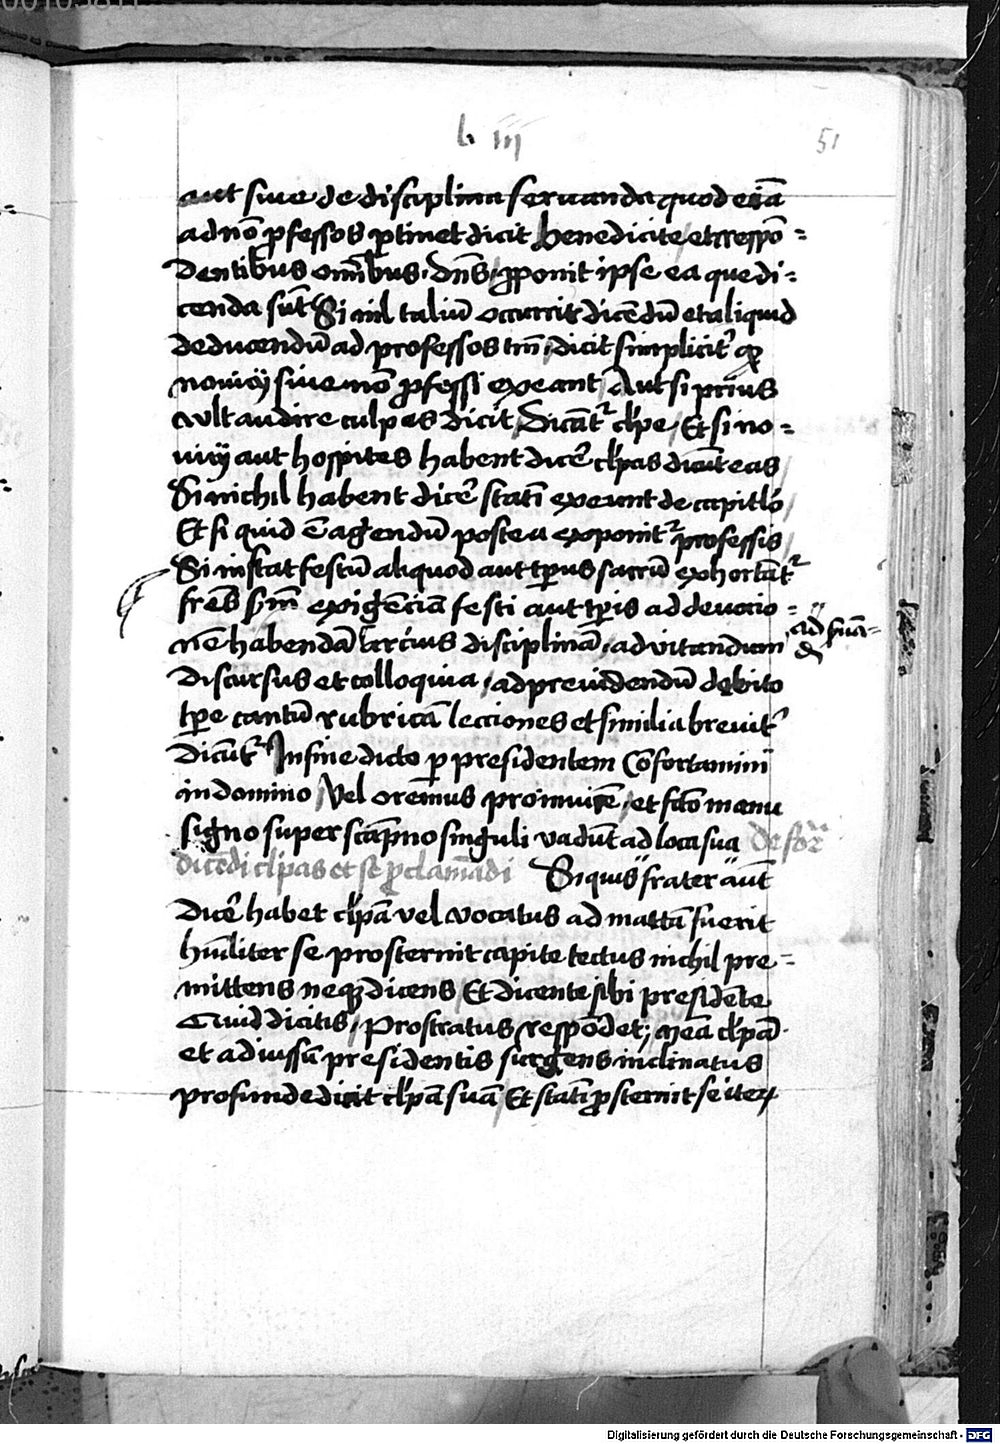 l iij
51
aut siue de disciplina seruanda quod eciā
ad nō ꝓfessos ꝑtinet dicit Benedicite / et respō=
dentibus om̄ibus. Dn̄s / ꝓponit ipse ea que di=
cenda sūt Si nil taliū occurrit dicēdū et aliquid
deducendū ad professos tm̄ / dicit simplicit᷑ ꝙ
nouicij siue nō ꝓfessi exeant / Aut si prius
vult audire culpas dicit / Dicāt᷑ cl̄pe / Et si no=
uicij aut hospites habent dic᷑e cl̄pas dicūt eas /
Si nichil habent dic᷑e statī exeunt de capitl̄o /
Et si quid ē agendū postea exponit᷑ professis /
Si instat festū aliquod aut tꝑus sacrū exhortāt᷑
fr̄es scd̄m exigēciā festi aut tꝑis ad deuocio=
nē habendā / arcius disciplinā / ad vitandum
discursus et colloquia / ad preuidendū debito
tꝑe cantū rubricā lecciones et similia breuit᷑
dicūt᷑ In fine dicto ꝑ presidentem Cōfortamini
in domino / Vel oremus proinuicē / et fc̄o manu
signo super scāpno singuli vadūt ad loca sua de for᷑
dicēdi cl̄pas et se ꝓclamādi Si quis frater aut̄
dic᷑e habet cl̄pā vel vocatus ad mattā fuerit
hūiliter se prosternit capite tectus nichil pre=
mittens neqꝫ dicens / Et dicente sibi presidēte
Quid dicitis / Prostratus respōdet; Mea cl̄pa.
et ad iussū presidentis surgens inclinatus
profunde dicit cl̄pā suā / Et statī ꝓsternit se iteꝝ